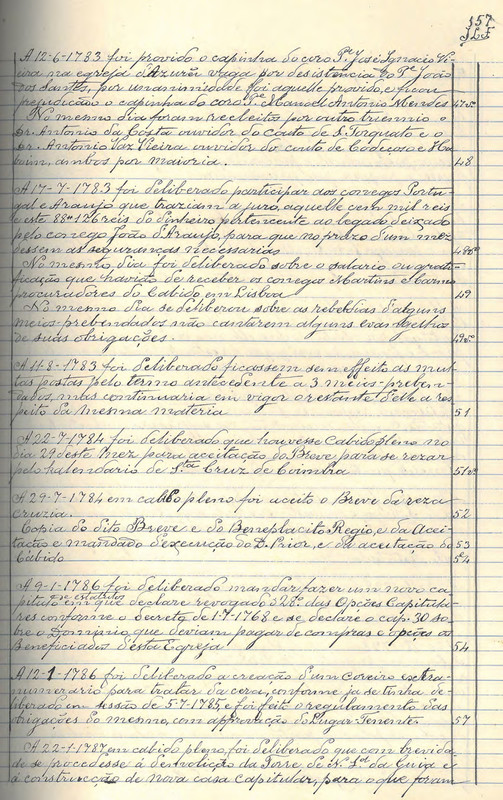 157
JLF
A 12-6-1783 foi provido o capinha do coro Pe José Ignacio Vi-
eira na egreja d'Azurei vaga por desistencia do Pe João
dos Santos, por unanimidade foi aquelle provido, e ficou
prejudicão o capinha do coro Pe Manoel Antonio Mendes 47vo
No mesmo dia foram reeleitos por outro triennio o
Dr. Antonio da Costa ouvidor do couto de S. Torquato e o
Dr. Antonio Vaz Vieira ouvidor do couto de Codeçoso e Ma-
im, ambos por maioria. 48
A 17-7-1783 foi deliberado participar aos conegos Portu-
gal e Araujo que traziam a juro, aquelle cem mil reis
e este 88$176 reis do dinheiro pertencente ao legado deixado
pelo conego João d'Araujo, para que no prazo d'um mez
dessem as seguranças necessarias 48vo
No mesmo dia foi deliberado sobre o salario ou grati-
ficação que havião de receber os conegos Martins
procuradores do Cabido em Lisboa 49
No mesmo dia se deliberou sobre as rebeldias d'alguns
meios-prebendados não cantarem alguns evangelhos
de suas obrigações. 49vo
A 11-8-1783 foi deliberado ficassem sem effeito as mul-
tas postas pelo termo antecedente a 3 meios-preben-
dados, mas continuaria em vigor o restante d'elle a res-
peito da mesma materia 51
A 22-7-1784 foi deliberado que houvesse Cabido pleno no
dia 29 deste mez para aceitação do Breve para se rezar
pelo kalendario de Sta Cruz de Coimbra 51vo
A 29-7-1784 em cabido pleno foi aceito o Breve da reza
cruzia. 52
Copia do dito Breve e do Beneplacito Regio, e da Acei-
tação e mandado d'execução do D. Prior, e da aceitação do 53
Cabido 54
A 9-1-1786 foi deliberado mandar fazer um novo ca-
pitulo de estatutos em que declare revogado o 28º das Opções Capitula-
res conforme o decreto de 1-7-1768 e se declare o cap. 30 so-
bre o Dominio que deviam pagar de compras e opções os
Beneficiados d'esta Egreja 54
A 12-1-1786 foi deliberado a creação d'um Coreiro extra-
numerario para tratar da cera, conforme ja se tinha de-
liberado em sessão de 5-7-1785, e foi feito o regulamento das
obrigações do mesmo, com approvação do Lugar-Tenente. 57
A 22-1-1787 em cabido pleno, foi deliberado que com brevida-
de se procedesse á demolição da Torre de N. Sra da Guia e
á construcção de nova casa capitular, para o que foram